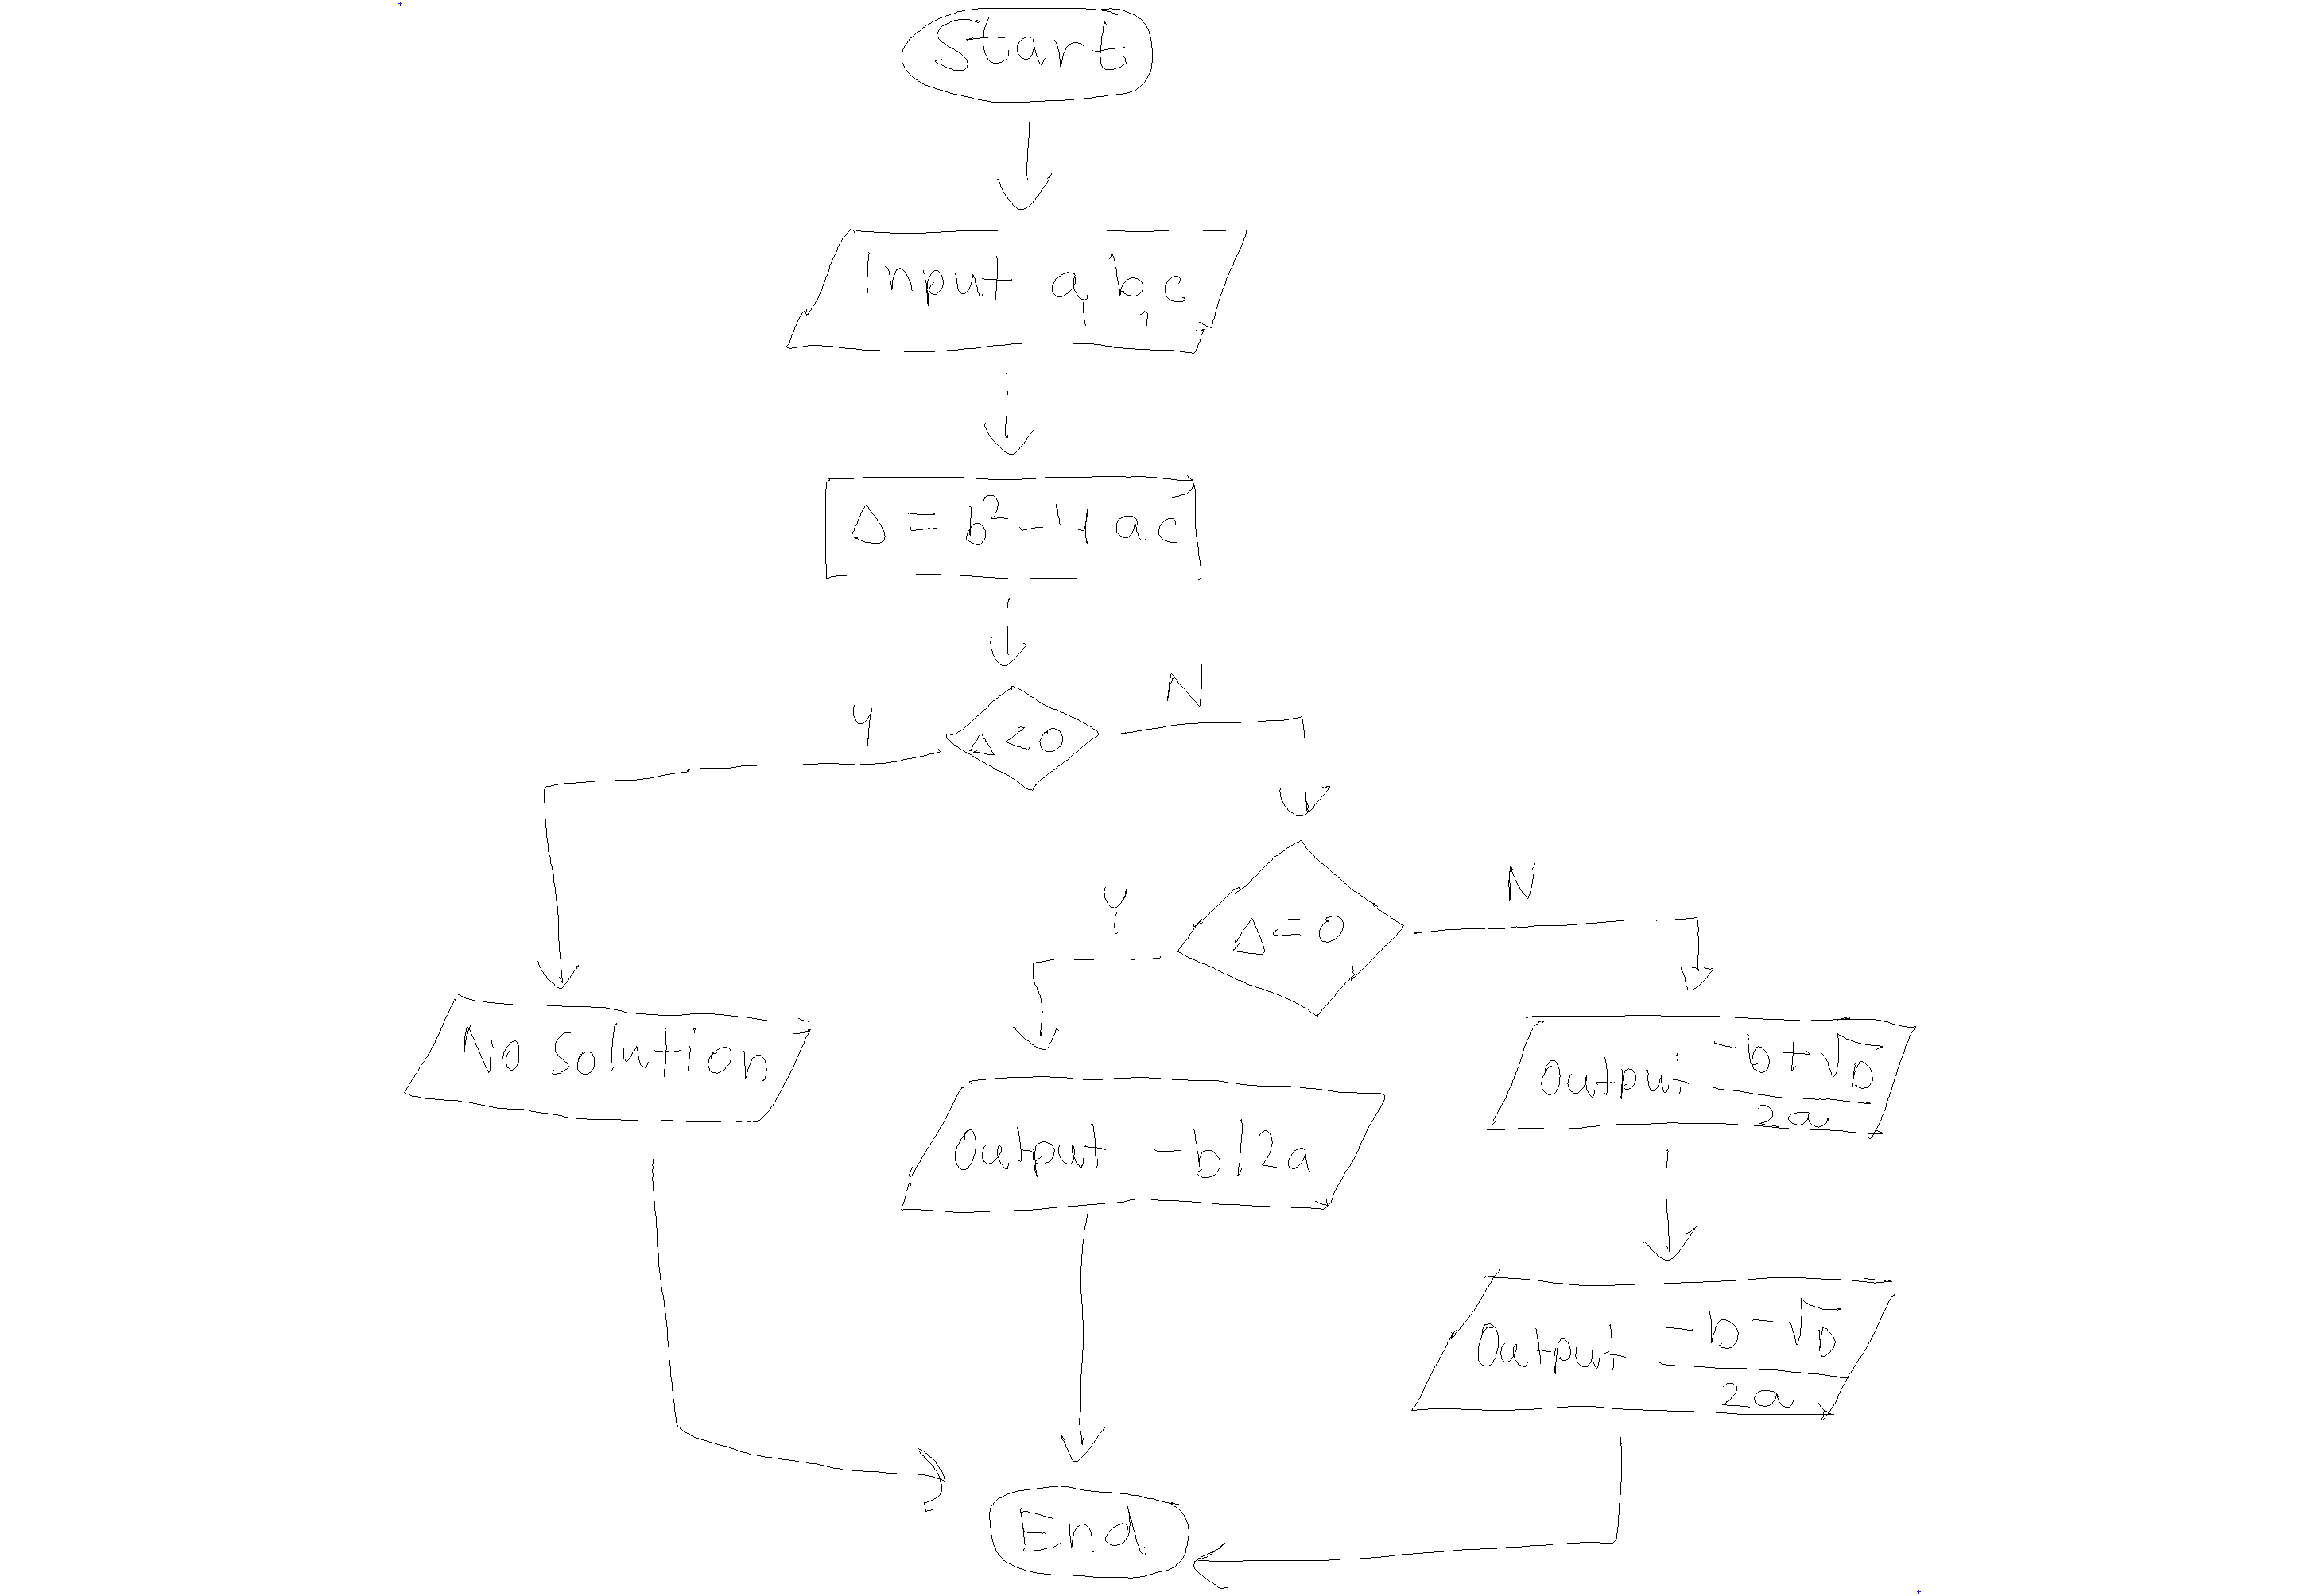 Start
Input a, b, c
Δ = b² - 4ac
Y
N
Δ < 0
Y
N
Δ = 0
No Solution
Output -b + √D
2a
Output -b/2a
Output -b - √D
2a
End